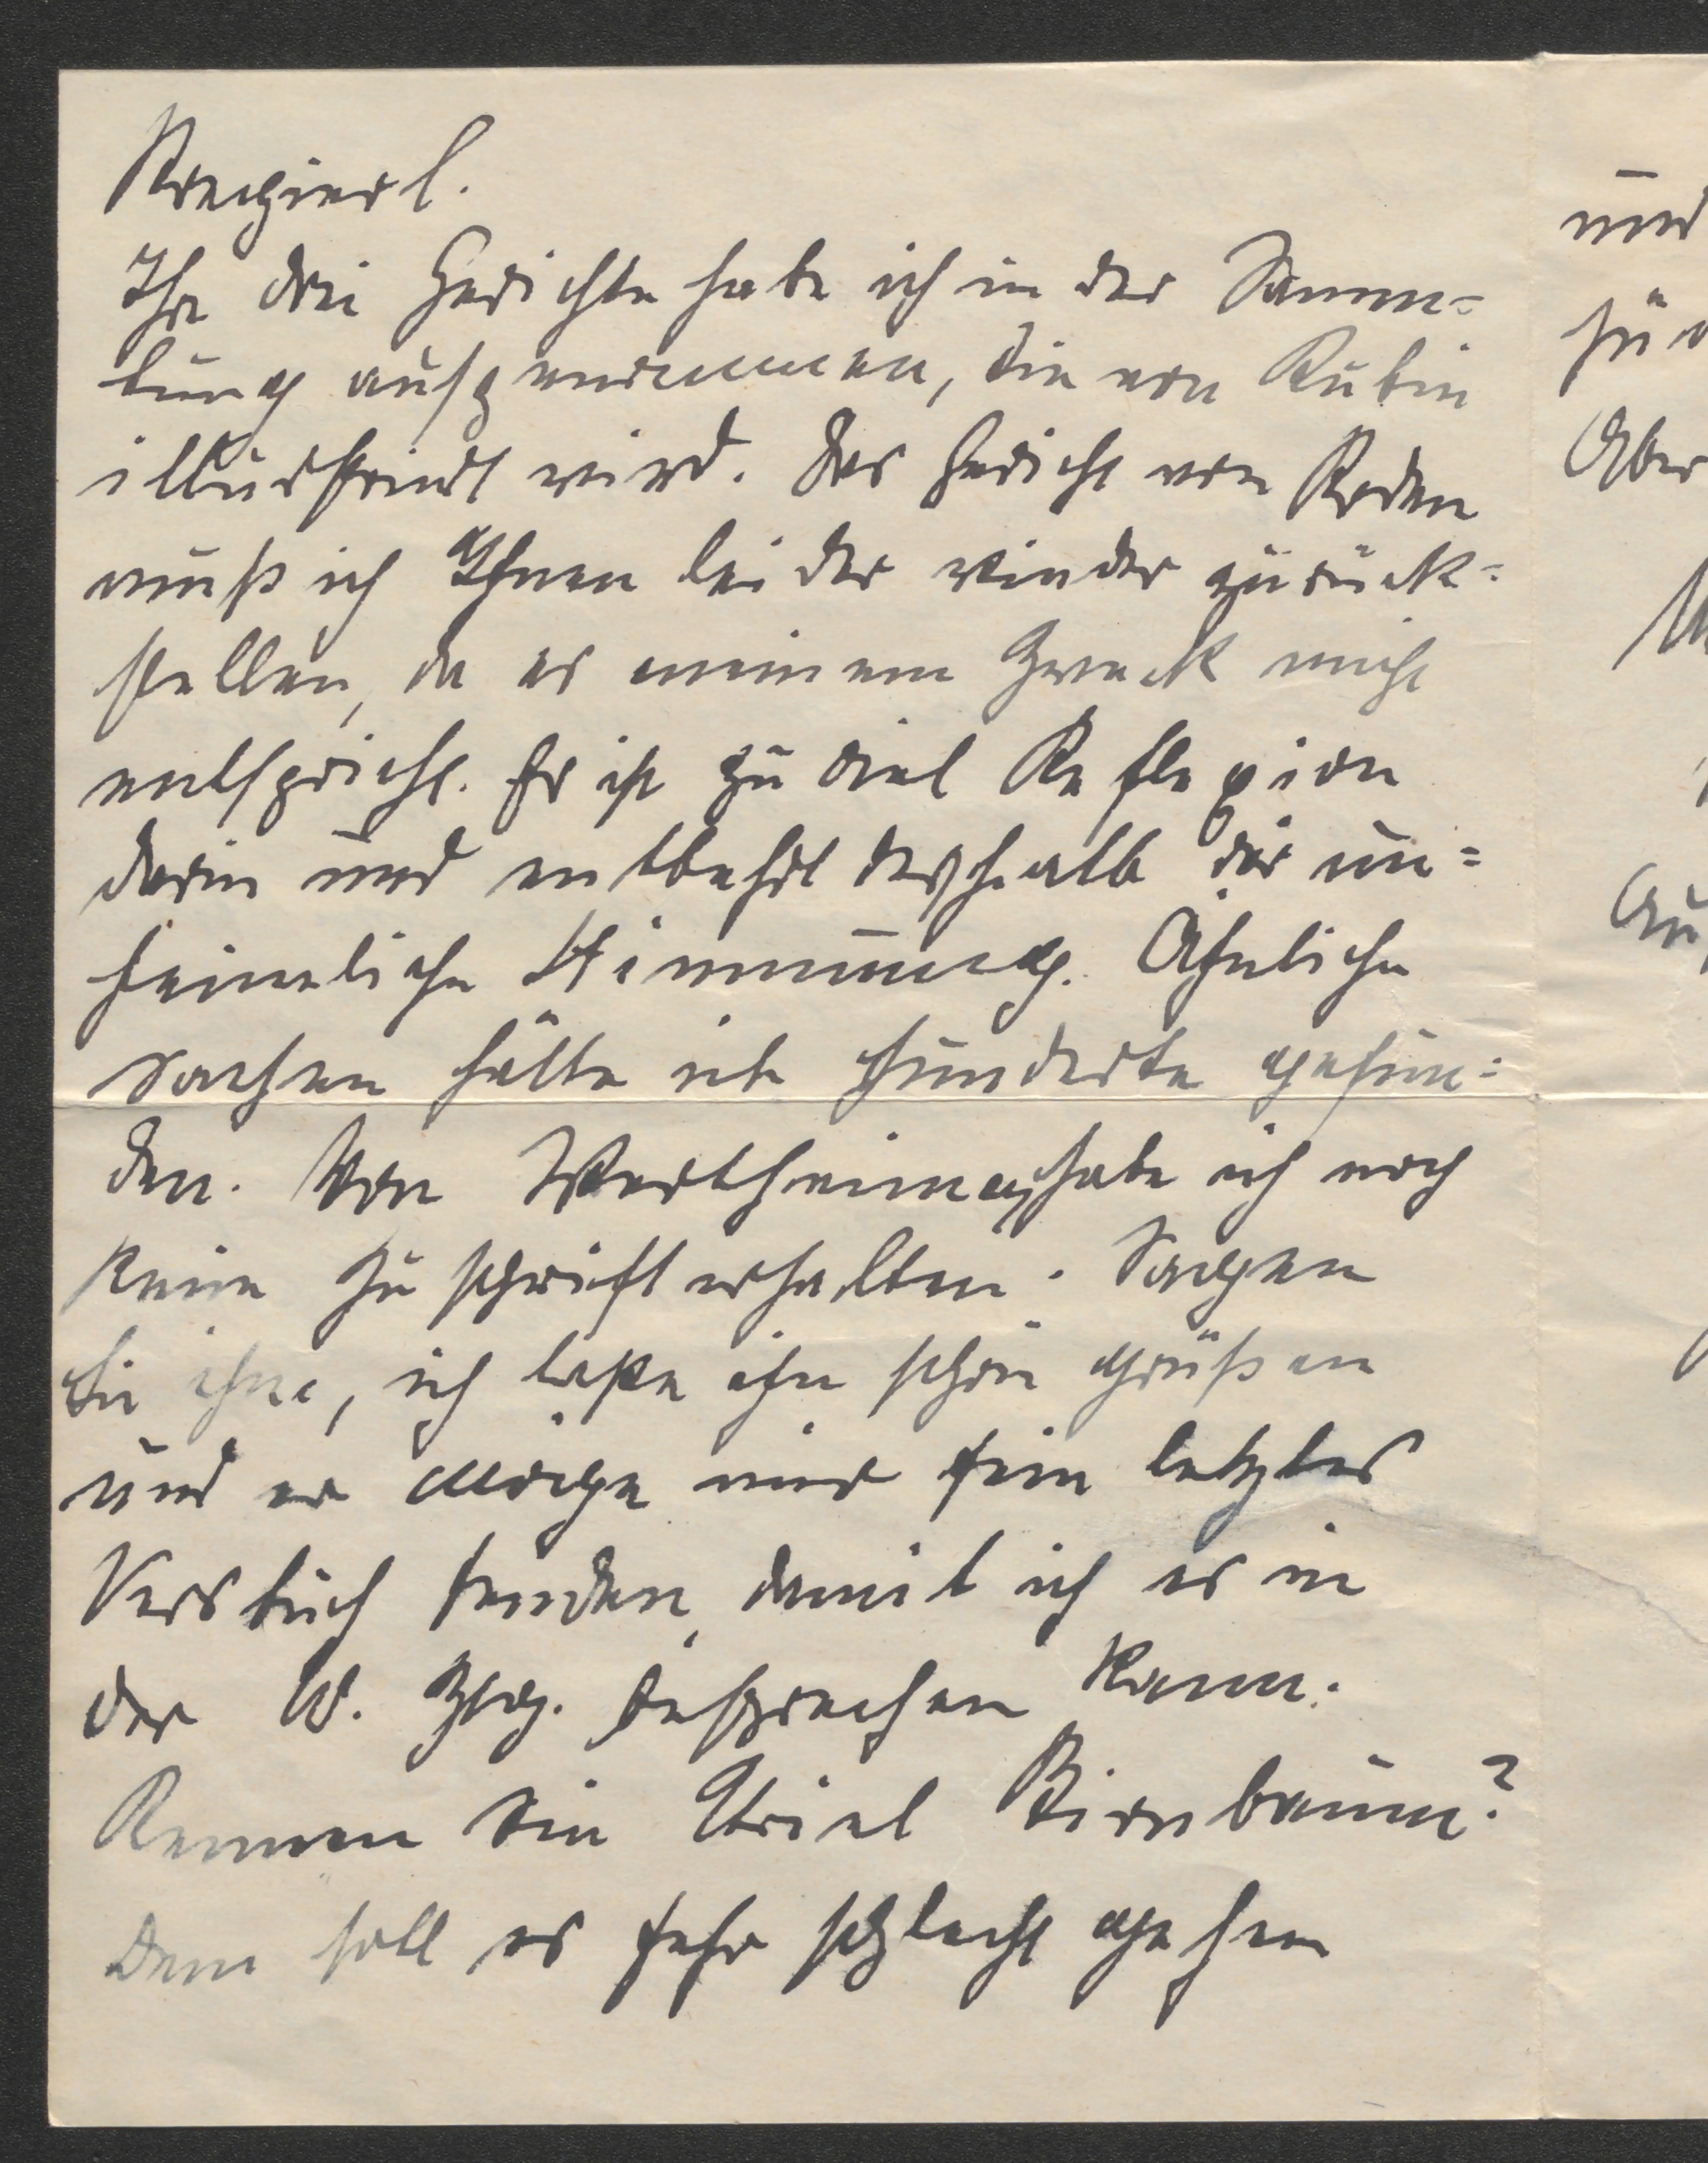 Ihre drei Gedichte habe ich in der Samm=
lung aufgenommen, die von Kubin
illustriert wird. Das Gedicht von Roden
muß ich Ihnen leider wieder zurück=
stellen, da es meinem Zweck nicht
entspricht. Es ist zu viel Reflexion
darin und entbehrt deshalb der un=
heimlichen Stimmung. Ähnliche
Sachen hätte ich hunderte gefun=
den. Von Wertheimer habe ich noch
keine Zuschrift erhalten. Sagen
Sie ihm, ich lasse ihn schön grüßen
und er möge mir sein letztes
Versbuch senden, damit ich es in
der W. Ztg. besprechen kann.
Kennen Sie Uriel Birnbaum?
Dem soll es sehr schlecht gehen
und
für
Aber